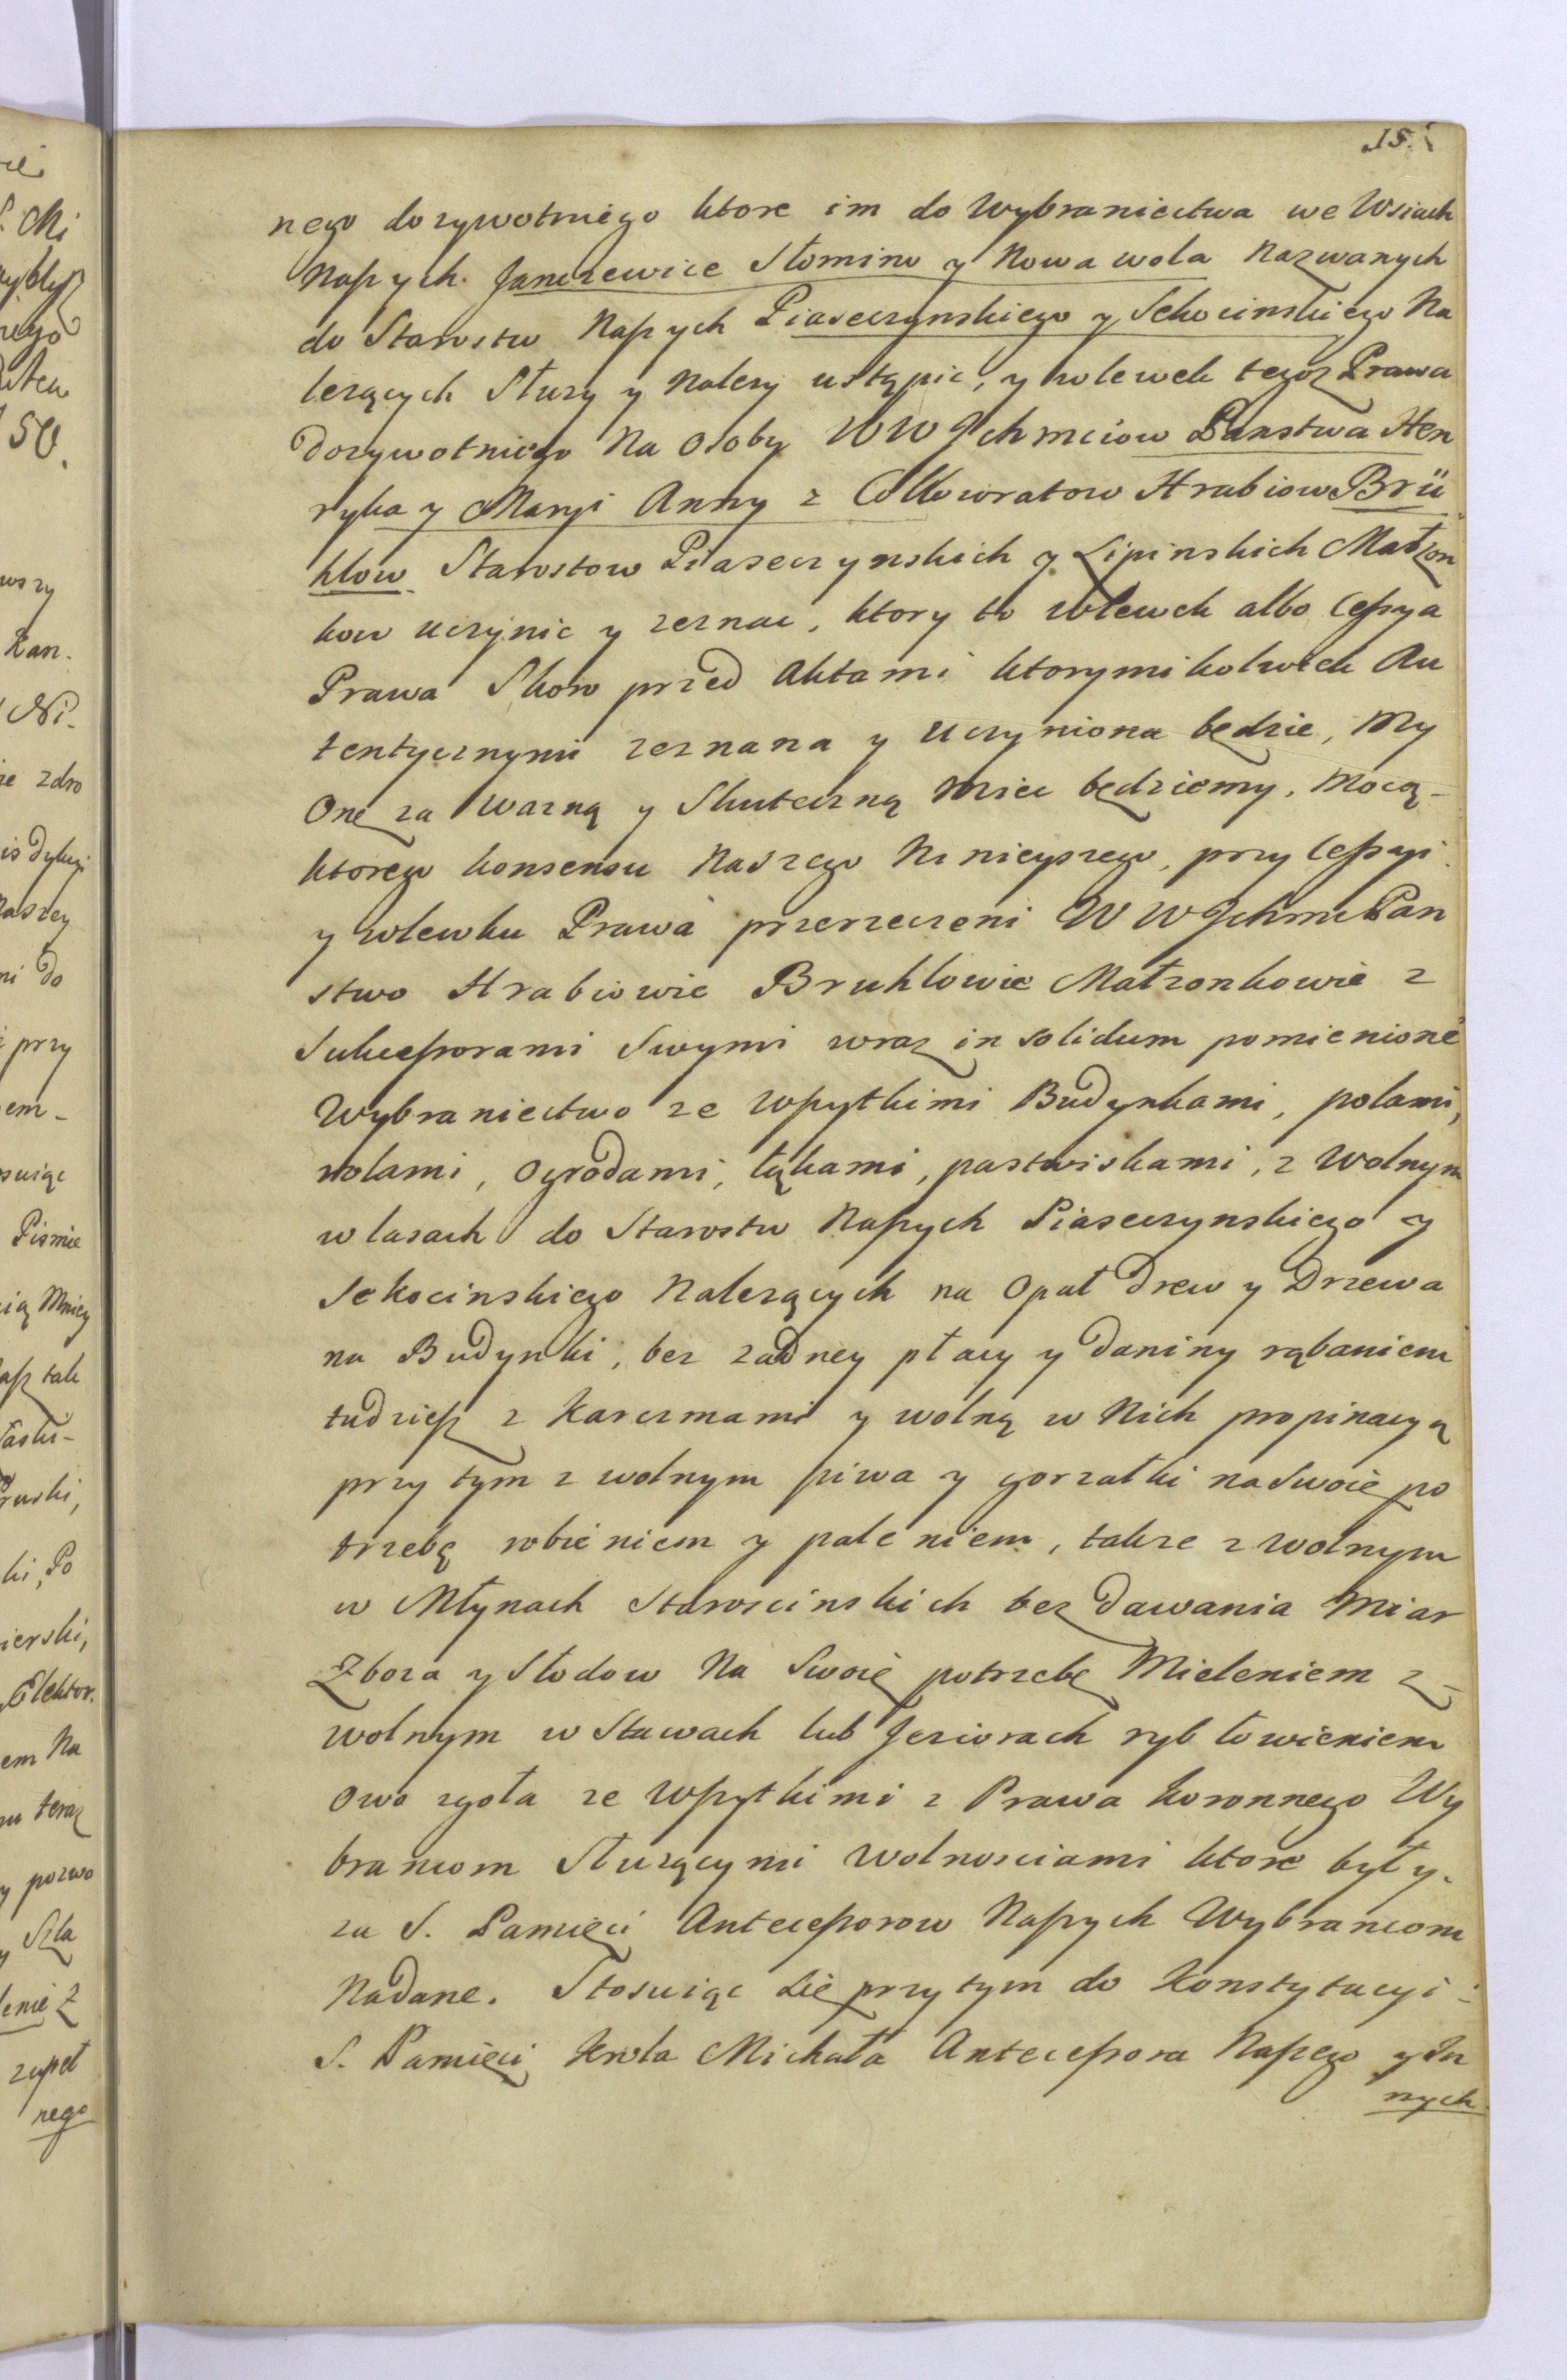 15.
nego dozywotniego ktore im do Wybraniectwa we Wsiach
Naszych. Janczewice Słomino y Nowa wola Nazwanych
do Starostw Naszych Piaseczynskiego y Sekocinskiego Na
lezących Słuzy y Nalezy ustąpic, y wlewek tegoz Prawa
Dozywotniego Na Osoby WW Jchmciow Panstwa Hen
ryka y Maryi Anny z Collowratow Hrabiow Brü
hlow Starostow Piaseczynskich y Lipinskich Małzon
kow uczynic y zeznac, ktory to wlewek albo Cessya
Prawa Skoro przed Aktami ktorymikolwiek Au
tentycznymi zeznana y Uczyniona będzie, My
Onę za wazną y Skuteczną Miec będziemy. Mocą
ktorego konsensu Naszego Ninieyszego, przy Cessyi
y wlewku Prawa przerzeczeni WW Jchmc Pan
stwo Hrabiowie Bruhlowie Małzonkowie z
Sukcessorami Swymi wraz in solidum pomienione
Wybraniectwo ze Wszytkimi Budynkami, polami,
rolami, Ogrodami, łąkami, pastwiskami, z Wolnym
w lasach do Starostw Naszych Piaseczynskiego y
Sekocinskiego Nalezących na Opał Drew y Drzewa
na Budynki, bez zadney płacy y Daniny rąbaniem
tudziesz z Karczmami y wolną w Nich propinacyą
przy tym z wolnym piwa y gorzałki na Swoię po
trzebę robieniem y paleniem, takze z wolnym
w Młynach Staroscinskich bez Dawania Miar
Zboza y Słodow Na Swoię potrzebę Mieleniem z
wolnym w Stawach lub Jeziorach ryb łowieniem
Owo zgoła ze Wszytkimi z Prawa Koronnego Wy
brancom Słuzącymi Wolnosciami ktore były
za S. Pamięci Antecessorow Naszych Wybrancom
Nadane. Stosuiąc się przy tym do Konstytucyi
S. Pamięci Krola Michała Antecessora Naszego y In
nych